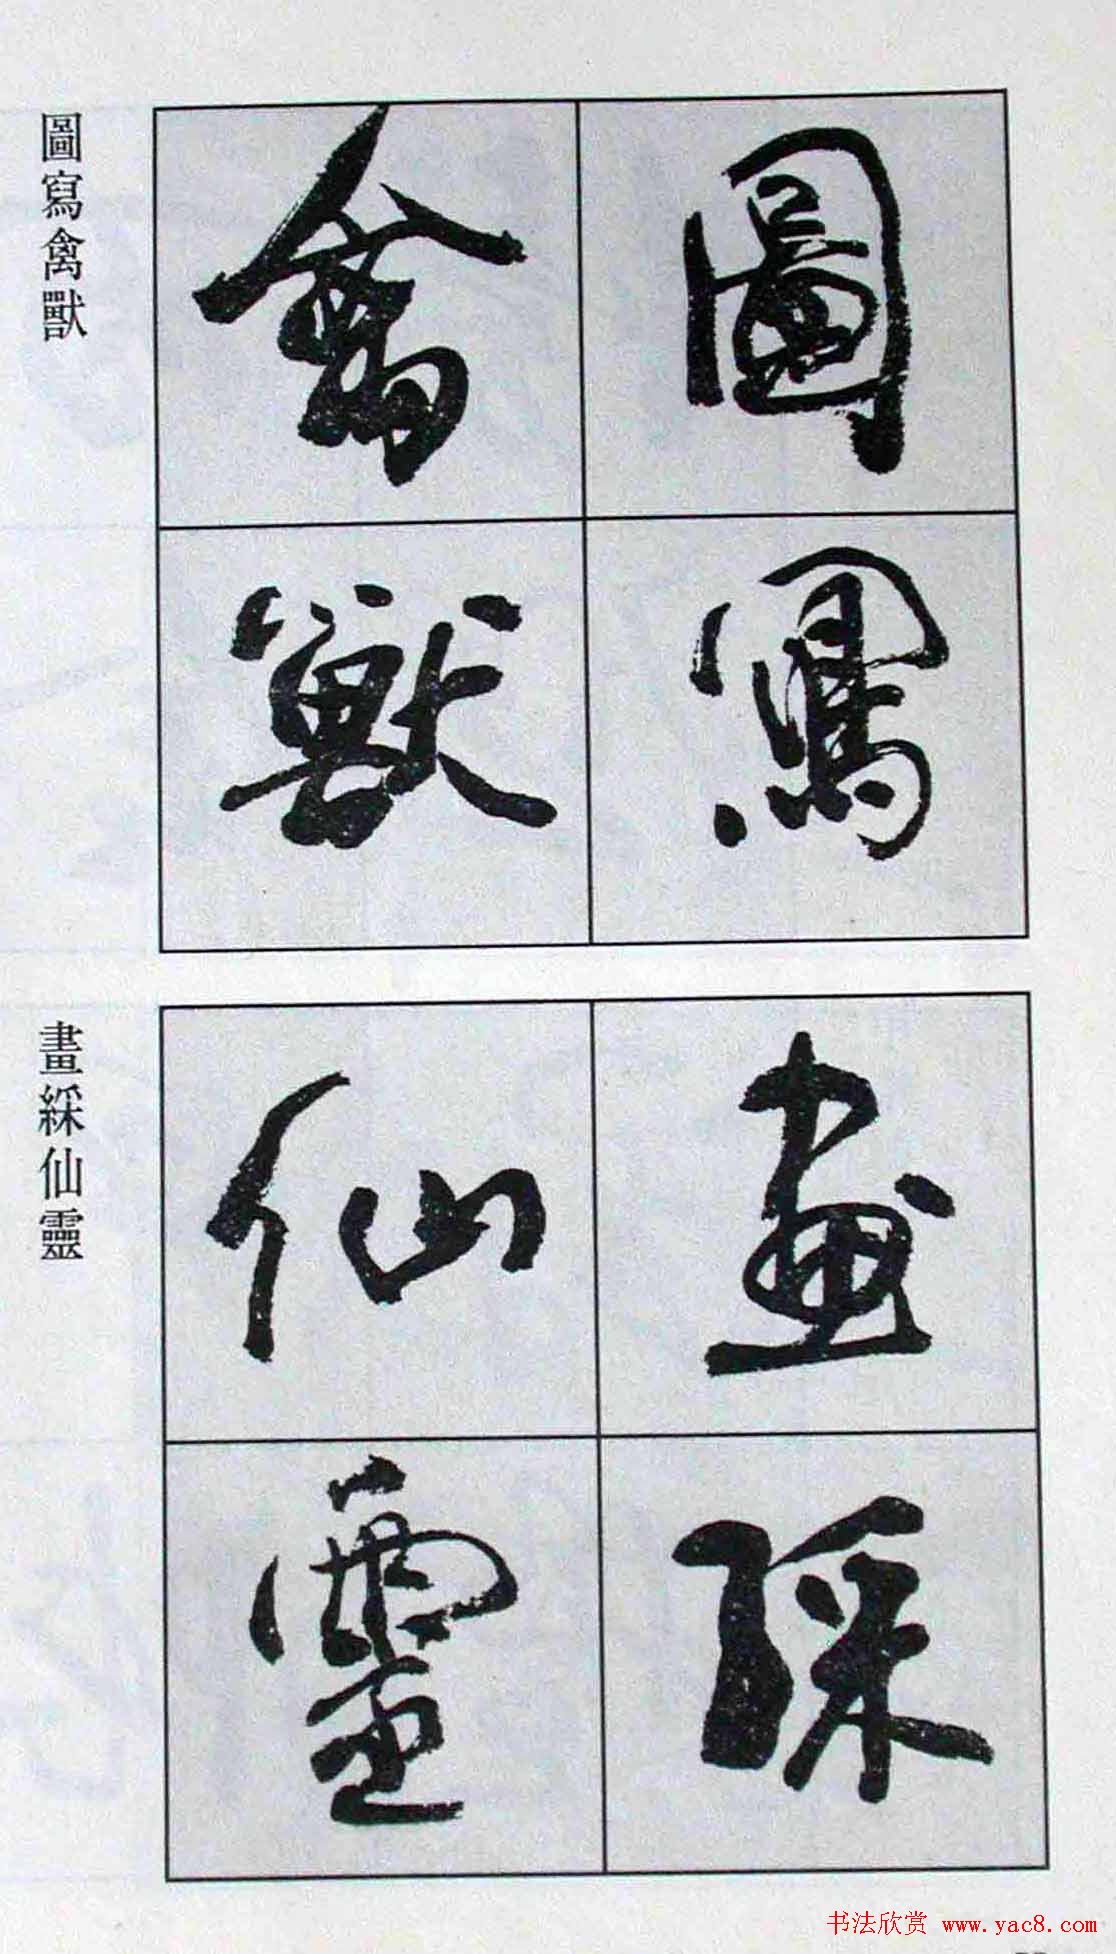 圖寫
禽獸
圖寫禽獸
畫綵
仙靈
畫綵仙靈
书法欣赏 www.yac8.com